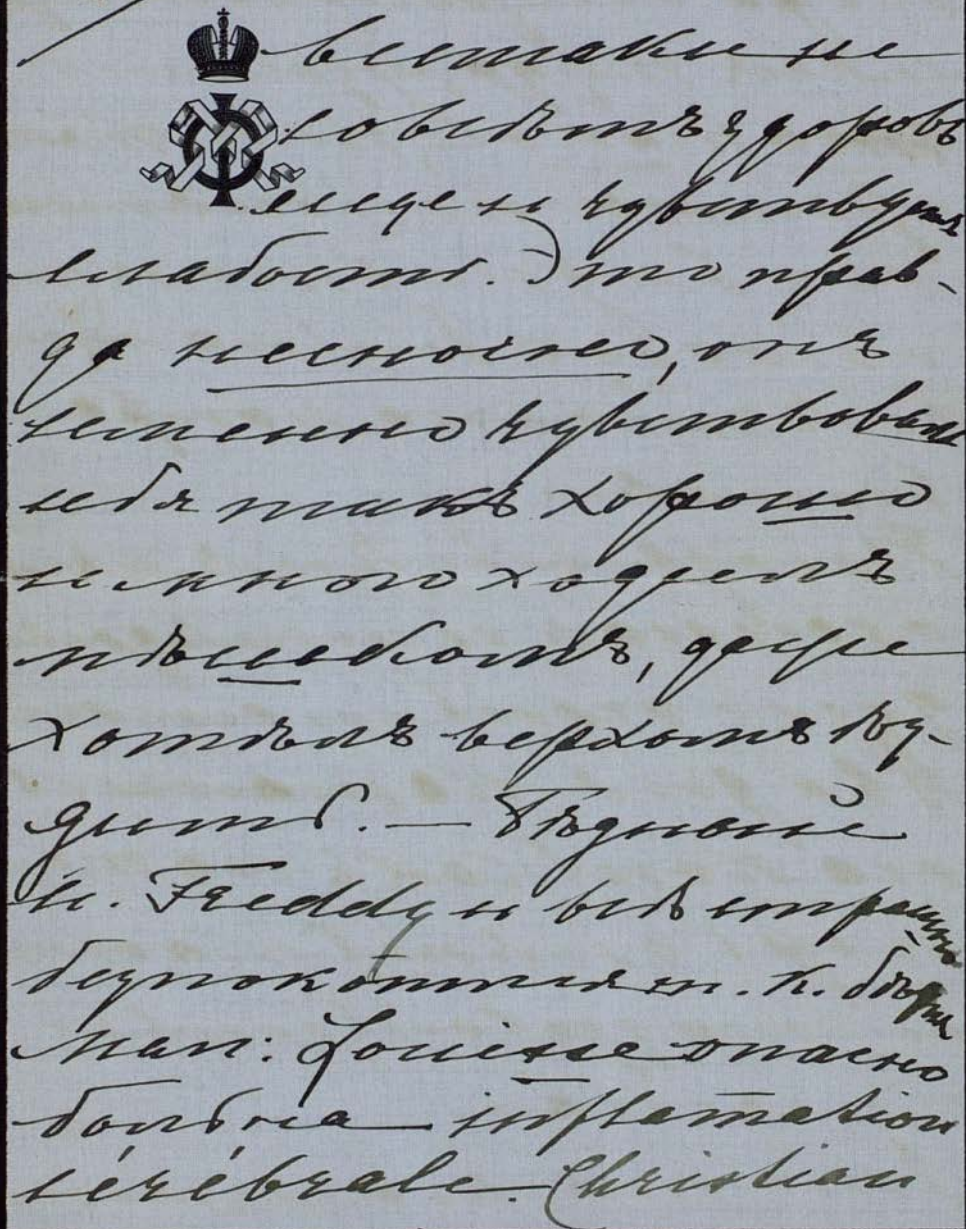 всетаки не
совсѣмъ здоровъ
еще и чувствуетъ
слабость. Это прав-
да несносно, онъ
именно чувствовалъ
себя такъ хорошо
и много ходилъ
пѣшкомъ, даже
хотѣлъ верхомъ ѣз-
дить. — Бѣдные
Freddy и всѣ страшно
безпокоятся т. к. бѣдная
мал: Louise опасно
больна inflamation
cérébrale. Christian